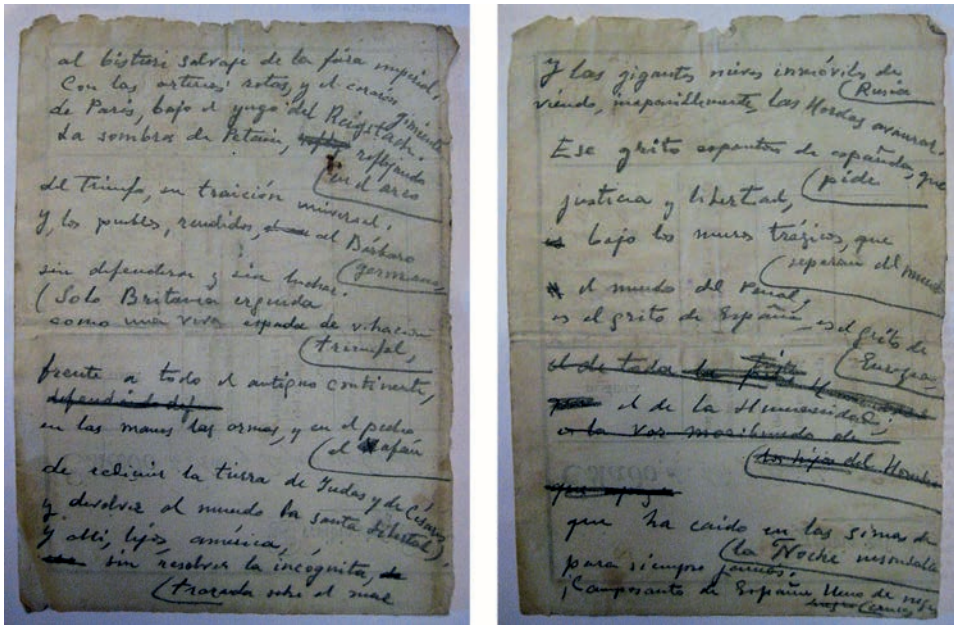 al bisturi salvaje de la fúria imperial,
Con las arterias rotas, y el corazón
gimiente
de París, bajo el yugo del Reigstach.
La sombra de Petain, reflejando
(en el arco
del Triunfo, su traición universal.
Y, los pueblos, rendidos, al Bárbaro
(germano,
sin defenderse y sin luchar.
(Solo Britania erguida
como una viva espada de vibración
(triunfal,
frente a todo el antiguo continente,
defendiendo del
en las manos las armas, y en el pecho
(el afán
de redimir la tierra de Judas y de Césares
y devolver al mundo la santa libertad).
Y allí, lejos, américa,
sin resolver la incognita,
(trazada sobre el mar
Y las gigantes nieves inmóviles de
(Rusia
viendo, impasiblemente, las Hordas avanzar.
Ese grito espantoso de españoles, que
(pide
justicia y libertad,
bajo los muros trágicos, que
(separan del mundo
el mundo del Penal,
es el grito de España, es el grito de
(Europa,
el de toda la
el de la Humanidad,
o la voz moribunda de
(los hijos del Hombre
que ha caído en las simas de
(la Noche insondable
para siempre jamás.
¡Camposanto de España lleno de negras